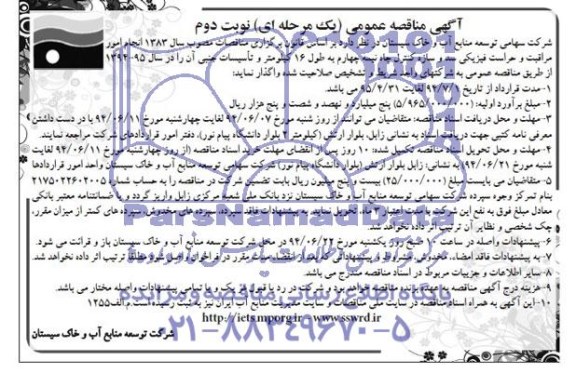 آگهی مناقصه عمومی (یک مرحله ای) نوبت دوم
شرکت سهامی توسعه منابع آب و خاک سیستان در نظر دارد بر اساس قانون برگزاری مناقصات مصوب سال ۱۳۸۳ انجام امور
مراقبت و حراست فیزیکی سد و سازه کنترل چاه نیمه چهارم به طول ۱۶ کیلومتر و تأسیسات جنبی آن را در سال ۹۵-۱۳۹۴
از طریق مناقصه عمومی به شرکتهای واجد شرایط و تشخیص صلاحیت شده واگذار نماید:
۱-مدت قرارداد از تاریخ ۹۴/۷/۱ لغایت ۹۵/۲/۳۱ می باشد.
۲-مبلغ برآورد اولیه: (۵/۹۶۵/۰۰۰/۰۰۰) پنج میلیارد و نهصد و شصت و پنج هزار ریال
۳-مهلت و محل دریافت اسناد مناقصه: متقاضیان می توانند از روز شنبه مورخ ۹۴/۰۶/۰۷ لغایت چهارشنبه مورخ ۹۴/۰۶/۱۱ با در دست داشتن
معرفی نامه کتبی جهت دریافت اسناد به نشانی زابل، بلوار ارتش (کیلومتر بلوار دانشگاه پیام نور)، دفتر امور قراردادهای شرکت مراجعه نمایند.
۴-مهلت و محل تحویل اسناد مناقصه تکمیل شده: ۱۰ روز پس از انقضای مهلت خرید اسناد مناقصه (از روز چهارشنبه مورخ ۹۴/۰۶/۱۱ لغایت
شنبه مورخ ۹۴/۰۶/۲۱) به نشانی زابل بلوار ارتش (بلوار دانشگاه پیام نور) شرکت سهامی توسعه منابع آب و خاک سیستان واحد امور قراردادها
۵-متقاضیان می بایست مبلغ (۲۵/۰۰۰/۰۰۰) بیست و پنج میلیون ریال بابت تضمین شرکت در مناقصه را به حساب شماره ۲۱۷۵۰۲۲۶۰۲۰۰۵
بنام تمرکز وجوه سپرده شرکت سهامی توسعه منابع آب و خاک سیستان نزد بانک ملی شعبه مرکزی زابل واریز گردد و یا ضمانتنامه معتبر بانکی
معادل مبلغ فوق به نفع این شرکت با مدت اعتبار ۳ ماه، تحویل نمایند. به پیشنهادات فاقد سپرده، سپرده های مخدوش، سپرده های کمتر از میزان مقرر،
چک شخصی و نظایر آن ترتیب اثر داده نخواهد شد.
۶-پیشنهادات واصله در ساعت ۱۰ صبح روز یکشنبه مورخ ۹۴/۰۶/۲۲ در محل شرکت توسعه منابع آب و خاک سیستان باز و قرائت می شود.
۷-به پیشنهادات فاقد امضاء، مخدوش، مشروط و پیشنهاداتی که بعد از انقضاء مدت مقرر در فراخوان واصل شود مطلقا ترتیب اثر داده نخواهد شد.
۸-سایر اطلاعات و جزییات مربوط در اسناد مناقصه مندرج می باشد.
۹-هزینه درج آگهی مناقصه به عهده برنده مناقصه خواهد بود و شرکت در رد یا قبول هر یک و یا تمامی پیشنهادات واصله مختار می باشد.
۱۰-این آگهی به همراه اسناد مناقصه در سایت ملی مناقصات و سایت مدیریت منابع آب ایران نیز به ثبت رسیده است. م الف ۱۲۵۵
http://iets.mporg.ir - www.sswrd.ir
شرکت توسعه منابع آب و خاک سیستان
ParsNamadData
۰۲۱-۸۸۳۴۹۶۷۰-۵